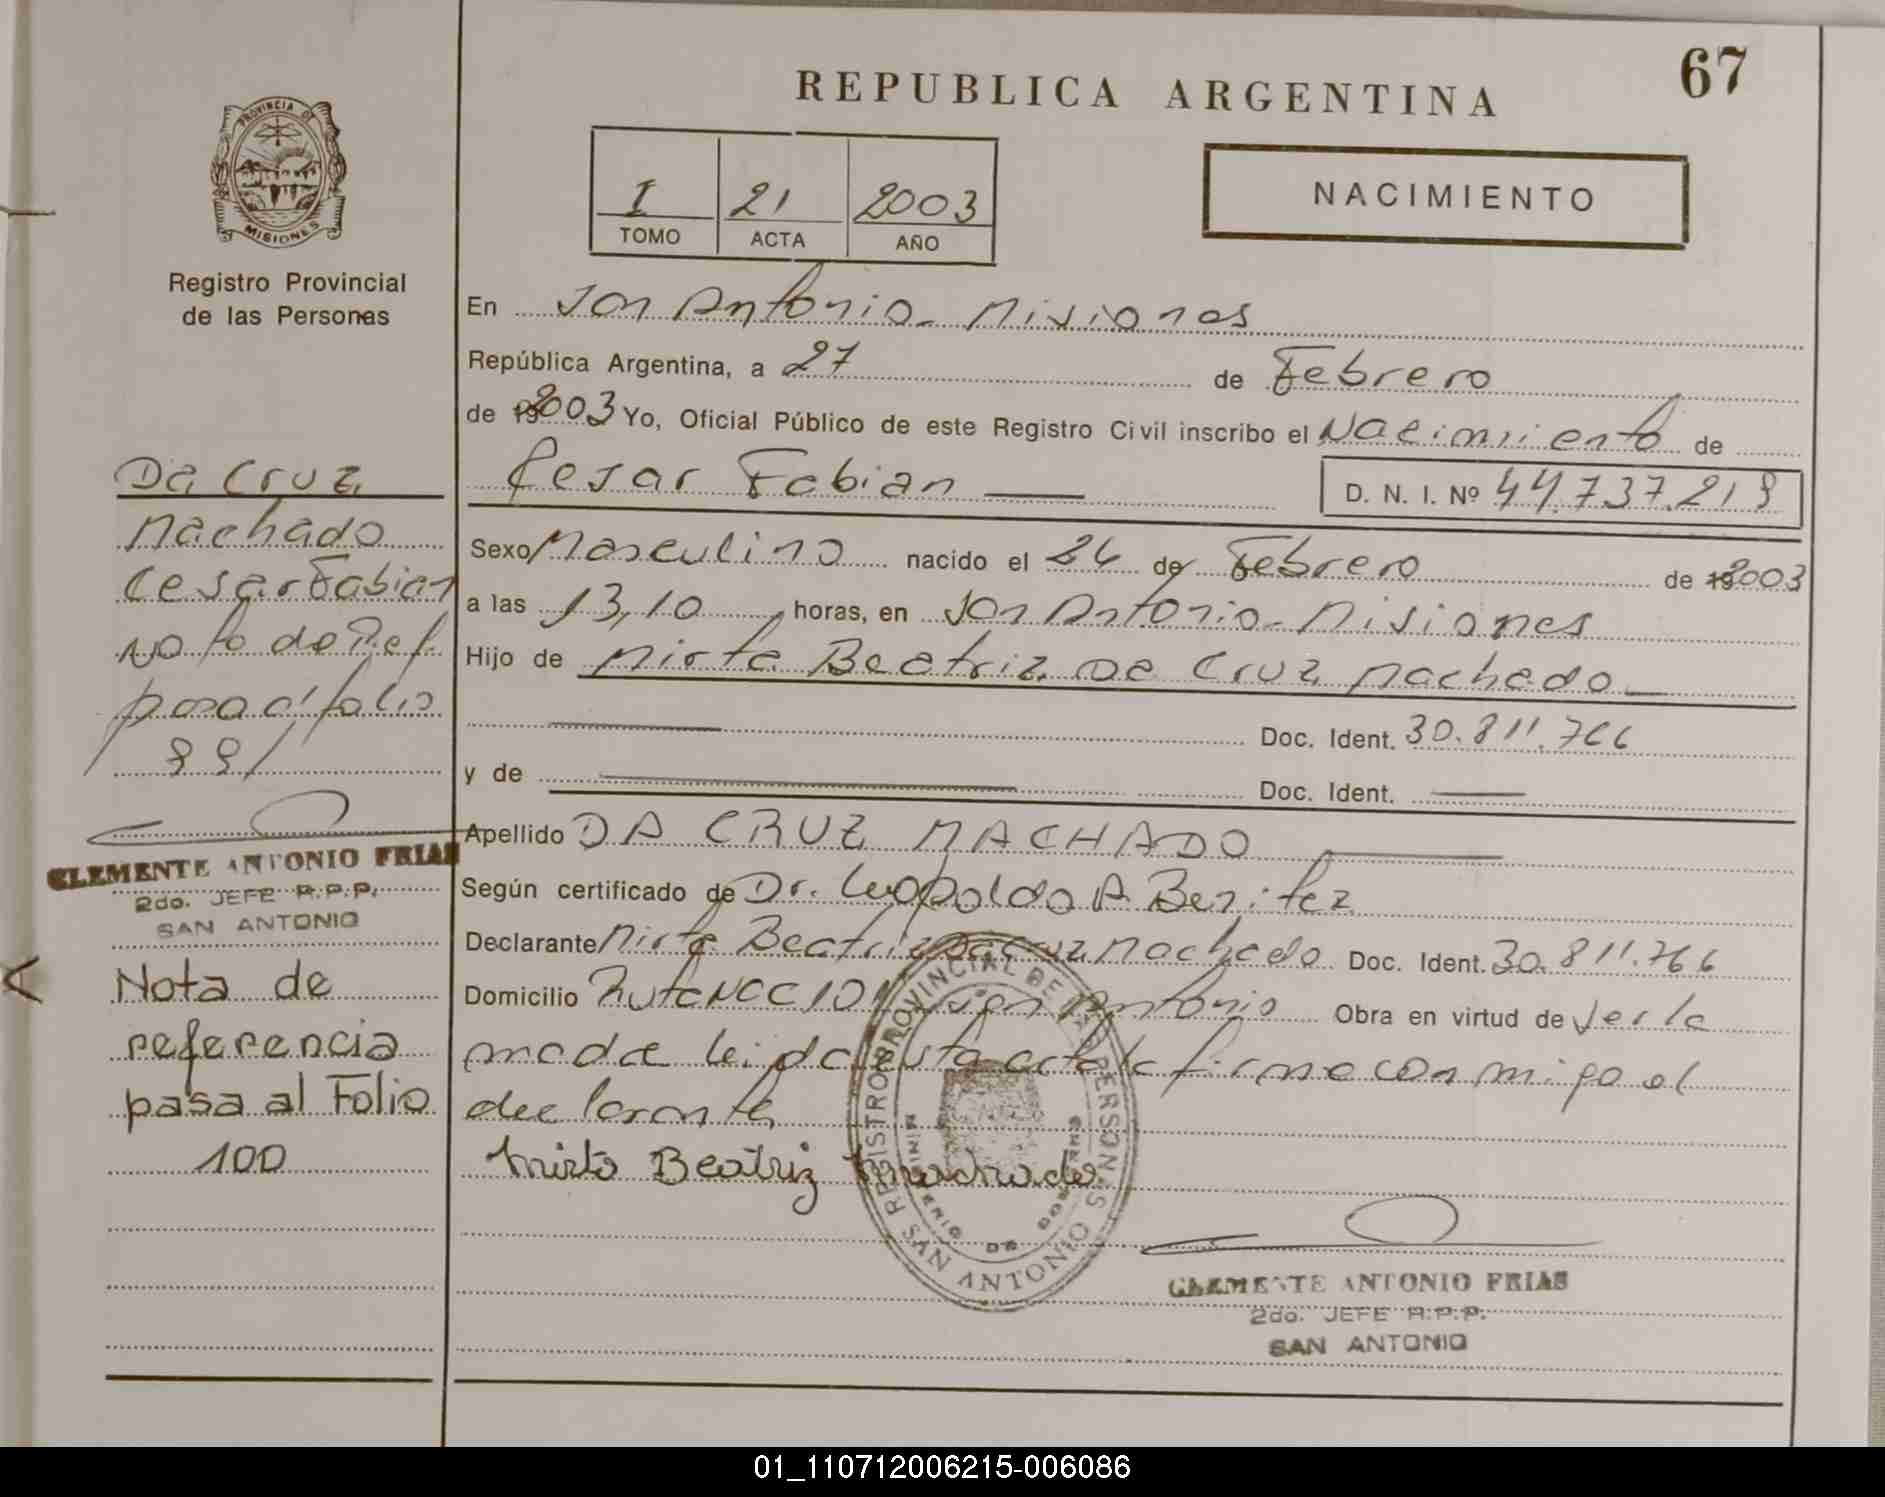 67
REPUBLICA ARGENTINA
PROVINCIA DE
MISIONES
Registro Provincial
de las Personas
I 21 2003
TOMO ACTA AÑO
NACIMIENTO
En San Antonio - Misiones
República Argentina, a 27 de Febrero
de 2003 Yo, Oficial Público de este Registro Civil inscribo el Nacimiento de
Cesar Fabian
D. N. I. Nº 44.737.219
Sexo Masculino nacido el 26 de Febrero de 2003
a las 13,10 horas, en San Antonio - Misiones
Hijo de Mirta Beatriz Da Cruz Machado
Doc. Ident. 30.811.766
y de Doc. Ident.
Apellido DA CRUZ MACHADO
Según certificado de Dr. Leopoldo A Benitez
Declarante Mirta Beatriz Da Cruz Machado Doc. Ident. 30.811.766
Domicilio Ruta Nac 101 San Antonio Obra en virtud de ser la
madre leida esta acta la firma conmigo el
declarante
Mirta Beatriz Machado
REGISTRO PROVINCIAL DE LAS PERSONAS
MINISTERIO DE GOBIERNO
SAN ANTONIO
CLEMENTE ANTONIO FRIAS
2do. JEFE R.P.P.
SAN ANTONIO
Da Cruz
Machado
Cesar Fabian
Nota de Ref.
pasa al folio
99
CLEMENTE ANTONIO FRIAS
2do. JEFE R.P.P.
SAN ANTONIO
Nota de
referencia
pasa al Folio
100
01_110712006215-006086